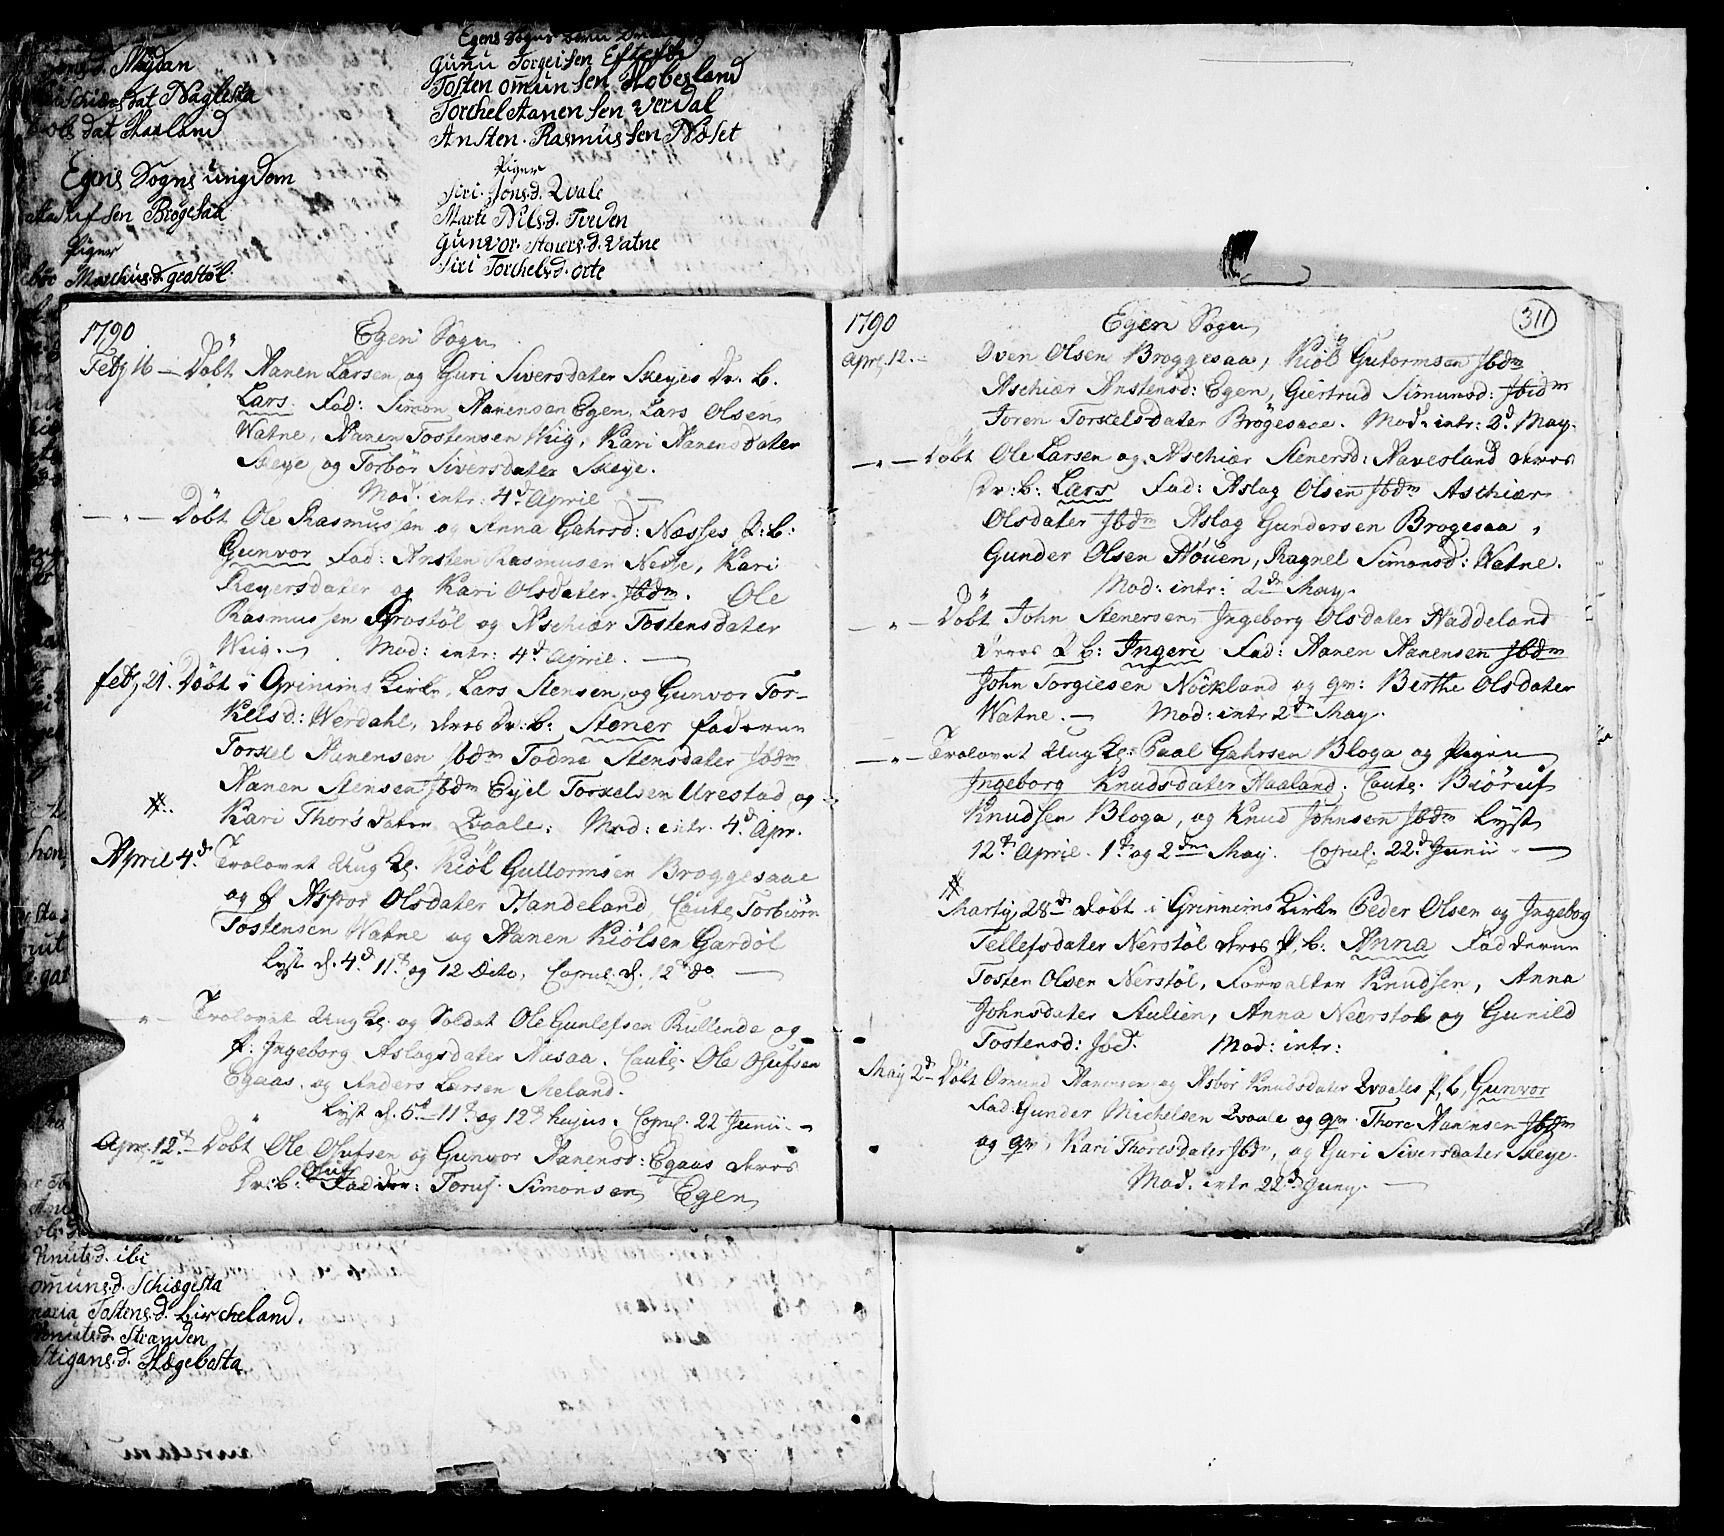 Skeydan
dat Nagelsta
dat Haaland
Egens Sogns ungdom
sen Brøgesaa
Piger
Marchus.d. geastøl
Egens Sogns
Gunu Torgeisen Eftesta
Tosten omunsen Hobesland
Torchel Aanensen verdal
Ansten. Rasmussen Nøset
Piger
Siri. Jons.d. Qvale
Marte Nils.d. Tveden
Gunvor. Steners.d. Vatne
Siri Torchels.d. orte
1790
Egen Sogn
Feb 16 — Døbt Aanen Larsen og Guri Siversdater Skeyes Dr. b.
Lars. Fad: Simon Aanensen Egen, Lars Olsen
Watne, Aanen Tostensen Wiig, Kari Aanensdater
Skeye og Torbør Siversdater Skeye.
Mod. intr: 4d April —
— „ — Døbt Ole Rasmussen og Anna Gahrsd: Næsses P: b:
Gunvor Fad: Ansten Rasmusen Nesse, Kari
Reyersdater og Kari Olsdater Ibdm. Ole
Rasmussen Prostøl og Aschier Tostensdater
Wiig. — Mod: intr: 4d April. —
Feb 21. Døbt i Grinims Kirke, Lars Stensen, og Gunvor Tor-
kelsd: Werdahl, deres Dr: b: Stener fadderne
Torkel Aanensen Ibdm Todne Stensdater Ibdm
Aanen Stensen Ibdm Eyel Torkelsen Urestad og
#. Kari Thorsdater Qvaale. Mod: intr. 4d Apr.
April 4d Trolovet Ung K. Kiøl Guttormsen Broggesaae
og P Aspror Olsdater Handeland, Caute Torbiørn
Tostensen Watne og Aanen Kiølsen Gardøl
Lyst d. 4d 11t og 12 Dito, Copul. d. 12t do —
— „ — Trolovet Ung K. og Soldat Ole Gunlefsen Rullende og
P: Ingeborg Aslagsdater Aasaa. Caute. Ole Olufsen
Egaas og Anders Larsen Meland.
Lyst d. 5t 11t og 12t hujus. Copul. 22 Junii —
Apr. 12t — Døbt Ole Olufsen og Gunvor Aanensd: Egaas deres
Dr: b: Oluf Fadder: Toruf. Simonsen Egen
1790
Egen Sogn
311
Apr. 12. — Sven Olsen Broggesaa, Kiøl Gutormsen Ibdm
Aschiær Anstensd: Egen, Giertrud Simunsd: Ibidm
Joren Torkelsdater Brøgesaae. Mod: intr: 2d May.
— „ — Døbt Ole Larsen og Aschiær Stenersd: Aavesland deres
Dr: b: Lars Fad: Aslag Olsen Ibdm Aschiær
Olsdater Ibdm Aslag Gundersen Brogesaa,
Gunder Olsen Houen, Ragnel Simonsd: Watne.
Mod: intr: 2dn May.
— „ — Døbt John Stenersen, Ingeborg Olsdater Haddeland
deres P b: Ingeri Fad: Aanen Aanensen Ibdm
John Torgiesen Nøckland og qv: Berthe Olsdater
Watne. — Mod: intr 2dn May.
— „ — Trolovet Ung K: Paal Gahrsen Bloga og Pigen
Ingeborg Knudsdater Haaland. Caute. Biørulf
Knudsen Bloga, og Knud Johnsen Ibdm Lyst
12t April. 1t og 2den May. Copul. 22d Junii —
#
Martij 28d Døbt i Grinnims Kirke Peder Olsen og Ingebog
Tellefsdater Nerstøl deres P. b: Anna Fadderne
Tosten Olsen Nerstøl, Forvalter Knudsen, Anna
Johnsdater Aulien, Anna Neerstol og Gunild
Tostensd: Ibd. Mod: intr:
May 2d — Døbt Omund Aanensen og Asbor Knudsdater Qvaales P, b, Gunvor
Fad. Gunder Michelsen Qvaale og qv. Thore Aanensen Ibdm
og qv, Kari Thoresdater Ibdm, og Guri Siversdater Skeye.
Mod. intr 22d Juny. —
Knuts.d. ibi
omuns.d. Schiægesta
maria Tostens.d. Kircheland.
Knuts.d. Stranden
Stigans.d. Hægebosta